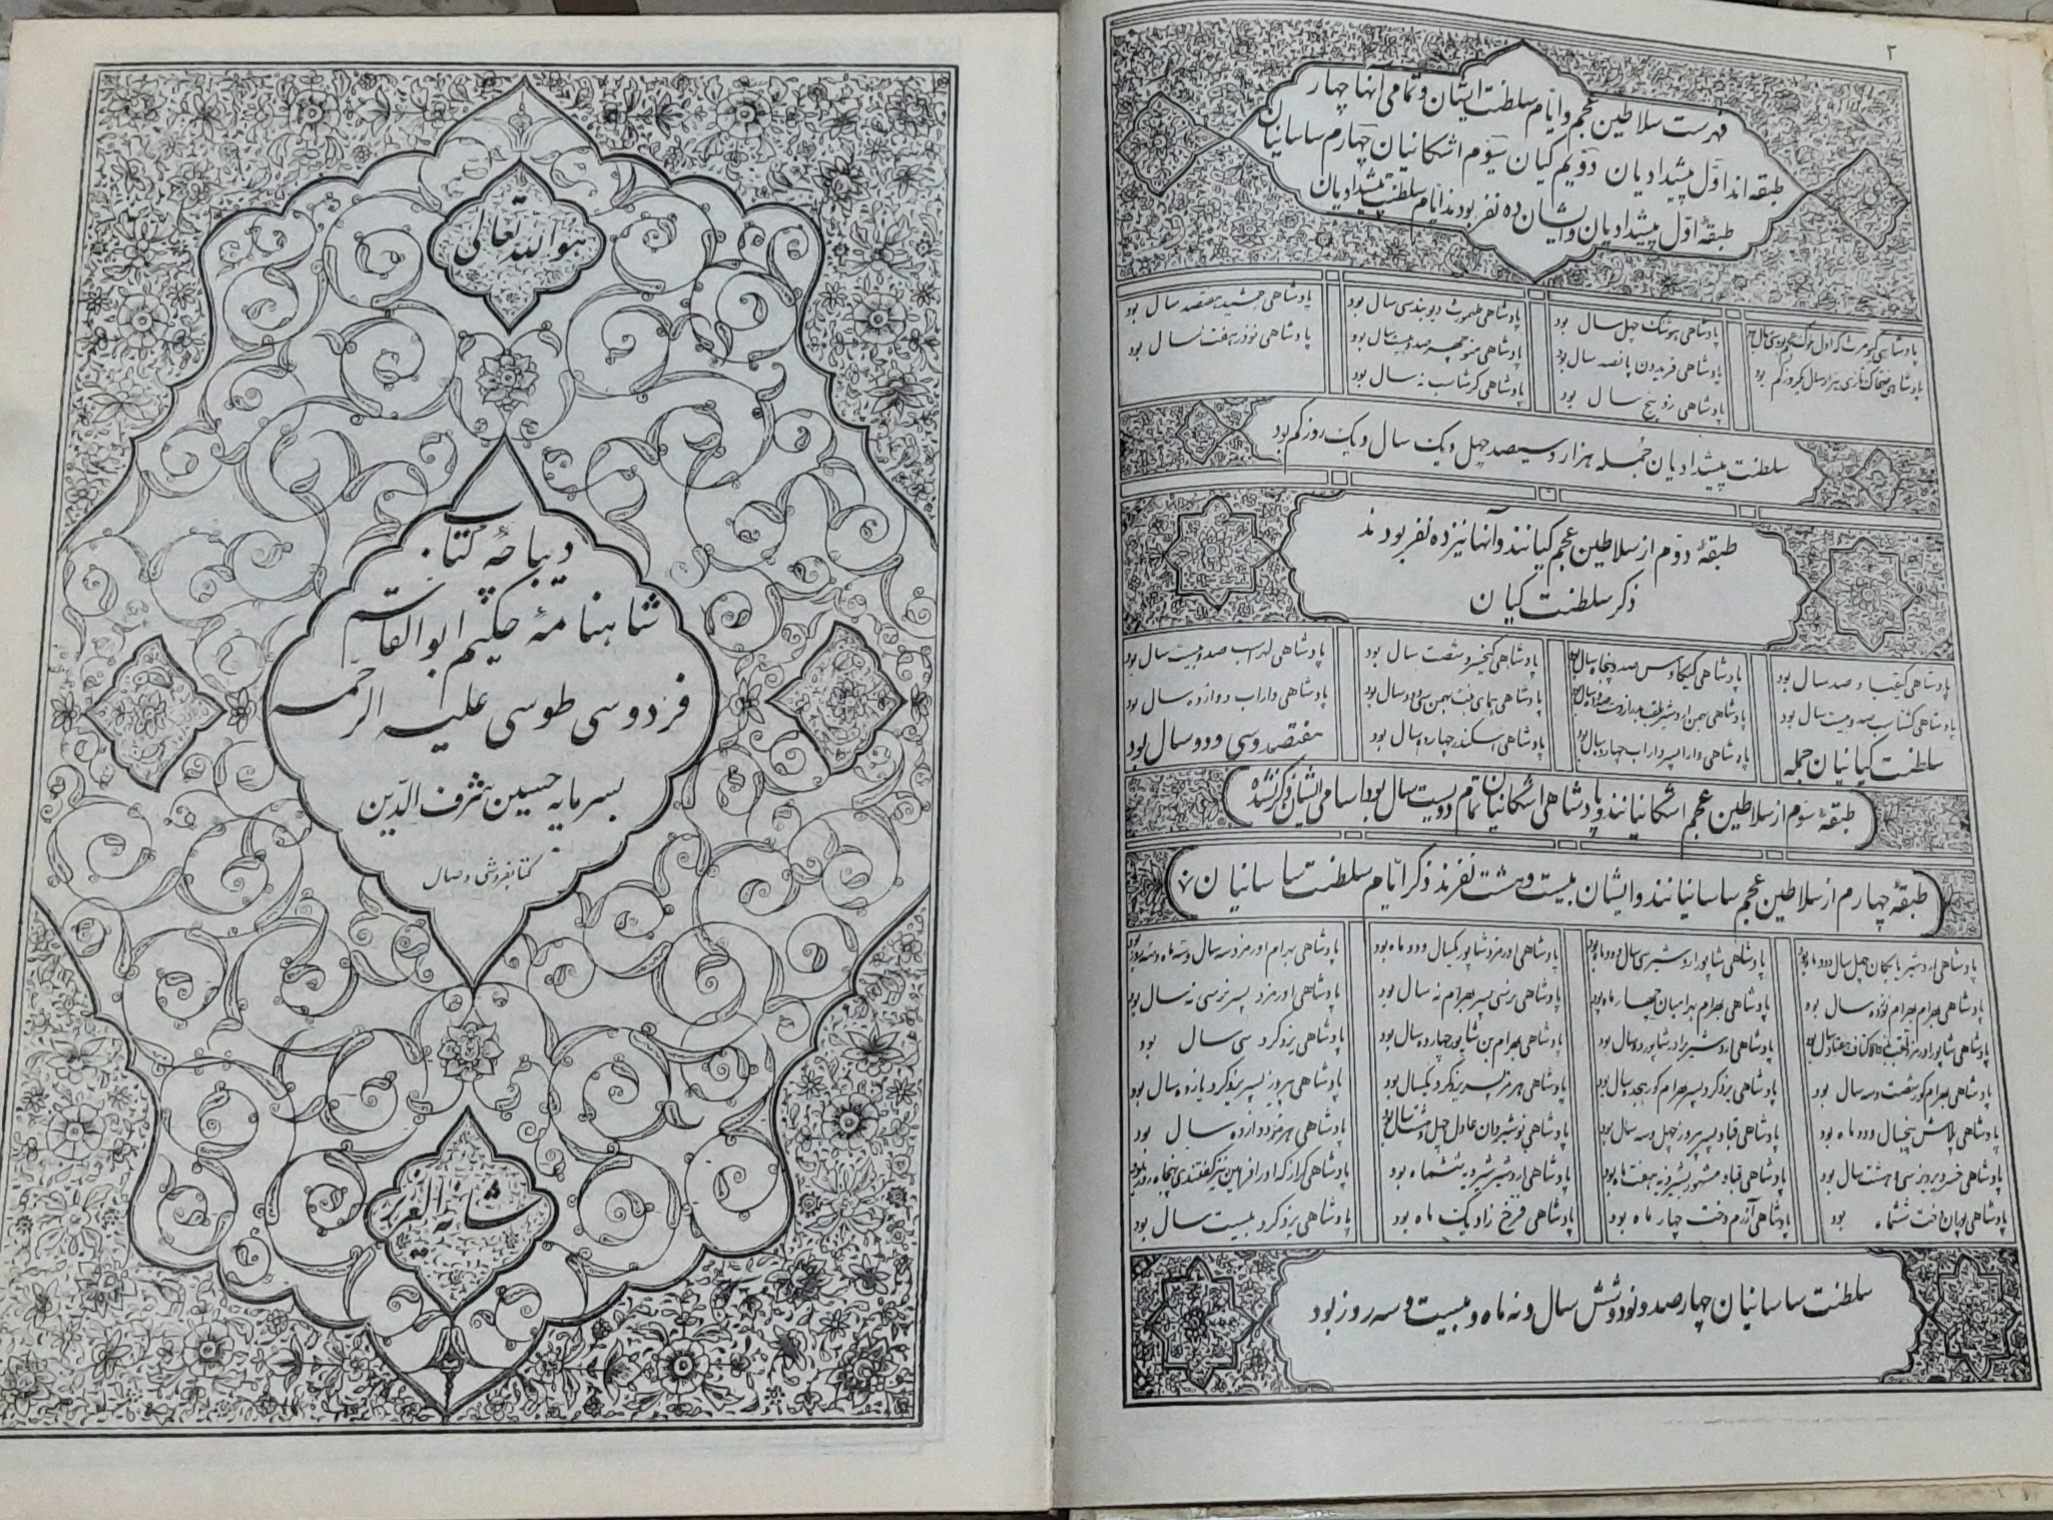 هو الله تعالی
دیباچهٔ کتاب
شاهنامهٔ حکیم ابوالقاسم
فردوسی طوسی علیه الرحمه
بسرمایه حسین شرف الدّین
کتابفروشی وصال
شانه العزیز
۲
فهرست سلاطین عجم و ایّام سلطنت ایشان و تمامی آنها چهار
طبقه اند اوّل پیشدادیان دوّیم کیان سوّم اشکانیان چهارم ساسانیان
طبقهٔ اوّل پیشدادیان و ایشان ده نفر بودند ایّام سلطنت پیشدادیان
پادشاهی کیومرث که اول ملوک عجم بود سی سال بود
پادشاهی هوشنک چهل سال بود
پادشاهی طهمورث دیوبند سی سال بود
پادشاهی جمشید هفتصد سال بود
پادشاهی ضحاک تازی هزار سال یکروز کم بود
پادشاهی فریدون پانصد سال بود
پادشاهی منوچهر صد و بیست سال بود
پادشاهی نوذر هفت سال بود
پادشاهی زو پنج سال بود
پادشاهی کرشاسب نه سال بود
سلطنت پیشدادیان جمله هزار و سیصد چهل و یک سال و یک روز کم بود
طبقهٔ دوّم از سلاطین عجم کیانند و آنها نیز ده نفر بودند
ذکر سلطنت کیان
پادشاهی کیقباد صد سال بود
پادشاهی کیکاوس صد و پنجاه سال بود
پادشاهی کیخسرو شصت سال بود
پادشاهی لهراسب صد و بیست سال بود
پادشاهی کشتاسب صد و بیست سال بود
پادشاهی بهمن اردشیر
پادشاهی همای بنت بهمن سی و دو سال بود
پادشاهی داراب دوازده سال بود
سلطنت کیانیان جمله
پادشاهی دارا پسر داراب چهارده سال بود
پادشاهی اسکندر چهارده سال بود
هفتصد و سی و دو سال بود
طبقهٔ سوّم از سلاطین عجم اشکانیانند و پادشاهی اشکانیان تمام دویست سال بود اسامی ایشان ذکر نشده
طبقهٔ چهارم از سلاطین عجم ساسانیانند و ایشان بیست و هشت نفرند ذکر ایّام سلطنت ساسانیان
پادشاهی اردشیر بابکان چهل سال و دو ماه بود
پادشاهی شاپور اردشیر سی سال و دو ماه بود
پادشاهی اورمزد شاپور یکسال و دو ماه بود
پادشاهی بهرام اورمزد سه سال و سه ماه و سه روز بود
پادشاهی بهرام بهرام نوزده سال بود
پادشاهی بهرام بهرامیان چهار ماه بود
پادشاهی نرسی پسر بهرام نه سال بود
پادشاهی اورمزد پسر نرسی نه سال بود
پادشاهی شاپور اورمزد
پادشاهی اردشیر برادر شاپور ده سال بود
پادشاهی بهرام بن شاپور چهارده سال بود
پادشاهی یزدکرد سی سال بود
پادشاهی بهرام کور شصت و سه سال بود
پادشاهی یزدکرد پسر بهرام کور هجده سال بود
پادشاهی هرمز پسر یزدکرد یکسال بود
پادشاهی پیروز پسر یزدکرد یازده سال بود
پادشاهی پلاش پنجسال و دو ماه بود
پادشاهی قباد پسر پیروز چهل و سه سال بود
پادشاهی نوشیروان عادل چهل و هشت سال بود
پادشاهی هرمز دوازده سال بود
پادشاهی خسرو پرویز سی و هشت سال بود
پادشاهی قباد مشهور بشیرویه هفت ماه بود
پادشاهی اردشیر شیرویه ششماه بود
پادشاهی کراز که او را فرایین نیز کفتندی پنجاه روز بود
پادشاهی پوران دخت ششماه بود
پادشاهی آزرم دخت چهار ماه بود
پادشاهی فرّخ زاد یک ماه بود
پادشاهی یزدکرد بیست سال بود
سلطنت ساسانیان چهارصد و نود و شش سال و نه ماه و بیست و سه روز بود